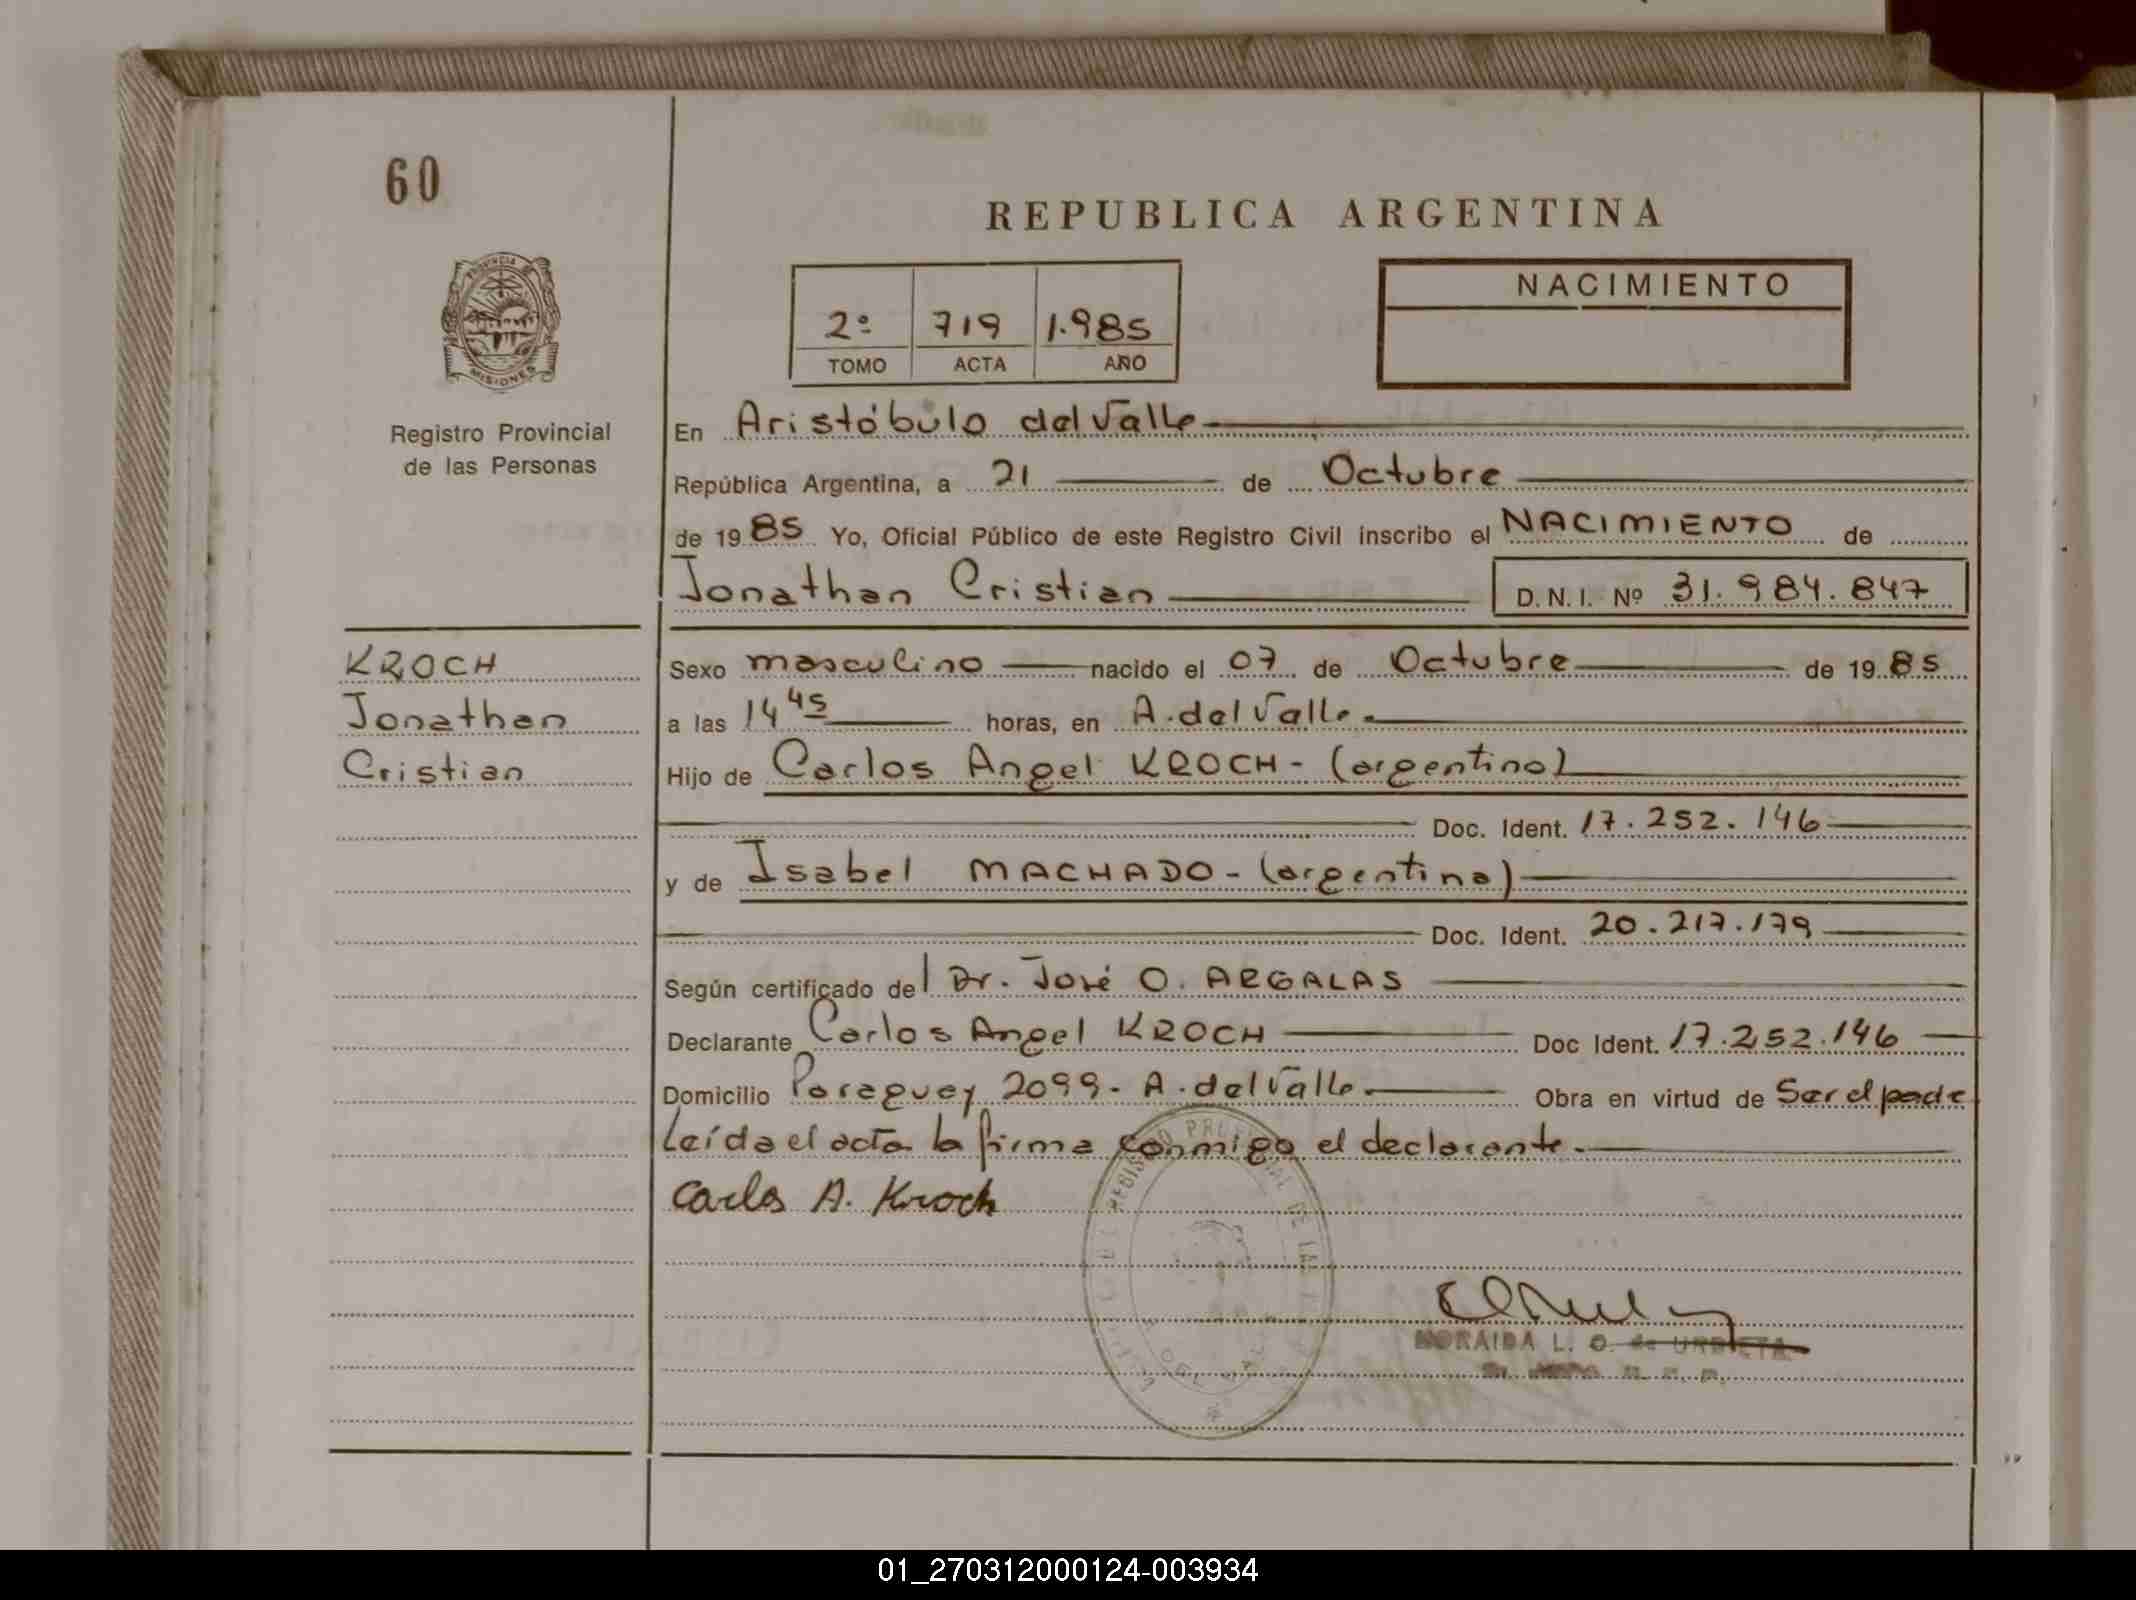 60
REPUBLICA ARGENTINA
PROVINCIA DE
MISIONES
Registro Provincial
de las Personas
2º 719 1.985
TOMO ACTA AÑO
NACIMIENTO
En Aristóbulo del Valle
República Argentina, a 21 de Octubre
de 1985 Yo, Oficial Público de este Registro Civil inscribo el NACIMIENTO de
Jonathan Cristian D.N.I. Nº 31.984.847
KROCH
Jonathan
Cristian
Sexo masculino nacido el 07 de Octubre de 1985
a las 14 45 horas, en A. del Valle.
Hijo de Carlos Angel KROCH - (argentino)
Doc. Ident. 17.252.146
y de Isabel MACHADO - (argentina)
Doc. Ident. 20.217.179
Según certificado del Dr. José O. ARGALAS
Declarante Carlos Angel KROCH Doc Ident. 17.252.146
Domicilio Paraguay 2099 - A. del Valle. Obra en virtud de Ser el padre
Leída el acta la firma conmigo el declarante.
Carlos A. Kroch
NORAIDA L. O. de URBIETA
01_270312000124-003934